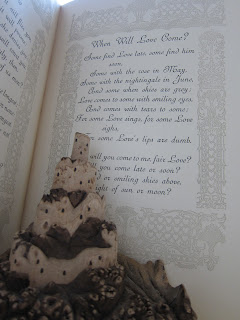 When Will Love Come?
Some find Love late, some find him
soon,
Some with the rose in May,
Some with the nightingale in June,
And some when skies are grey;
Love comes to some with smiling eyes,
And comes with tears to some;
For some Love sings, for some Love
sighs,
For some Love's lips are dumb.
will you come to me, fair Love?
you come late or soon?
or smiling skies above,
light of sun or moon?